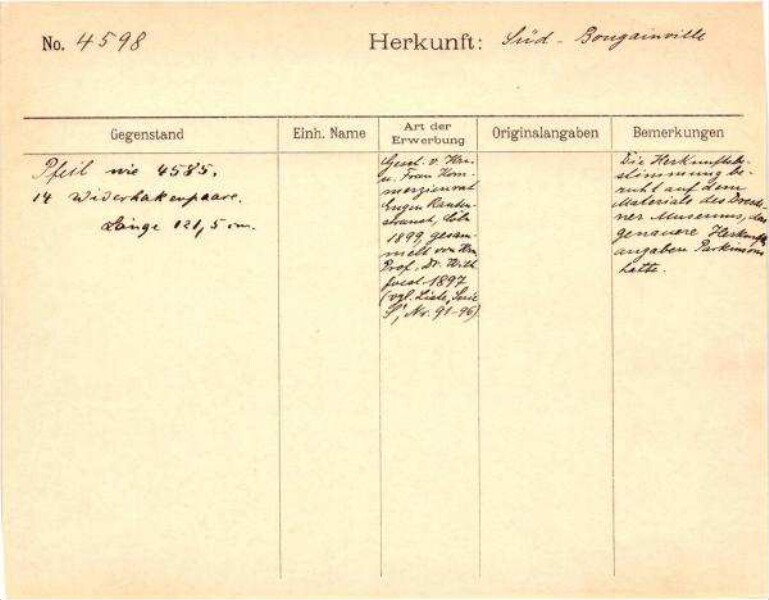 No. 4598
Herkunft: Süd - Bougainville
Gegenstand
Einh. Name
Art der
Erwerbung
Originalangaben
Bemerkungen
Pfeil wie 4585.
14 Widerhakenpaare.
Länge 121,5 cm.
Gesch. v. Hrn.
u. Frau Kom-
merzienrat
Eugen Rauten-
strauch, Cöln
1899, gesam-
melt von Hrn.
Prof. Dr. Wilh.
Joest 1897
(vgl. Liste, Serie
Nr. 91-96)
Die Herkunftsbe-
stimmung be-
ruht auf dem
Materiale des Dresd-
ner Museums, das
genauere Herkunfts-
angaben Parkinsons
hatte.